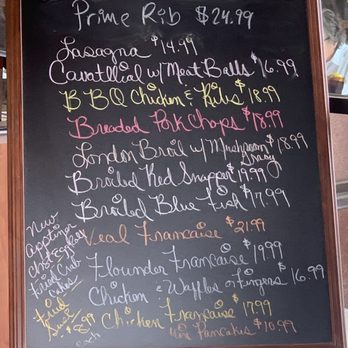 Prime Rib $24.99
Lasagna $14.99
Cavatllial w/ Meat Balls 16.99
BBQ Chicken & Ribs $18.99
Breaded Pork Chops $18.99
London Broil w/ Mushroom Gravy $18.99
Broiled Red Snapper 19.99
Broiled Blue Fish $17.99
Veal Francaise $21.99
Flounder Francaise $19.99
Chicken & Waffles or Fingers 16.99
Chicken Francaise $17.99
Pancakes $10.99
New
Appetizer
Fried Crab
Cakes
Fried
$8.99
each